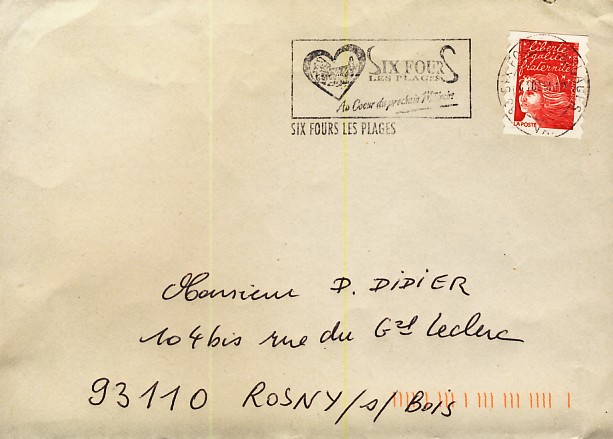 SIX FOURS
LES PLAGES
Au Coeur du prochain Millénaire
SIX FOURS LES PLAGES
Liberté
égalité
fraternité
LA POSTE
Monsieur D. DIDIER
104bis rue du Gral Leclerc
93110 ROSNY/s/Bois